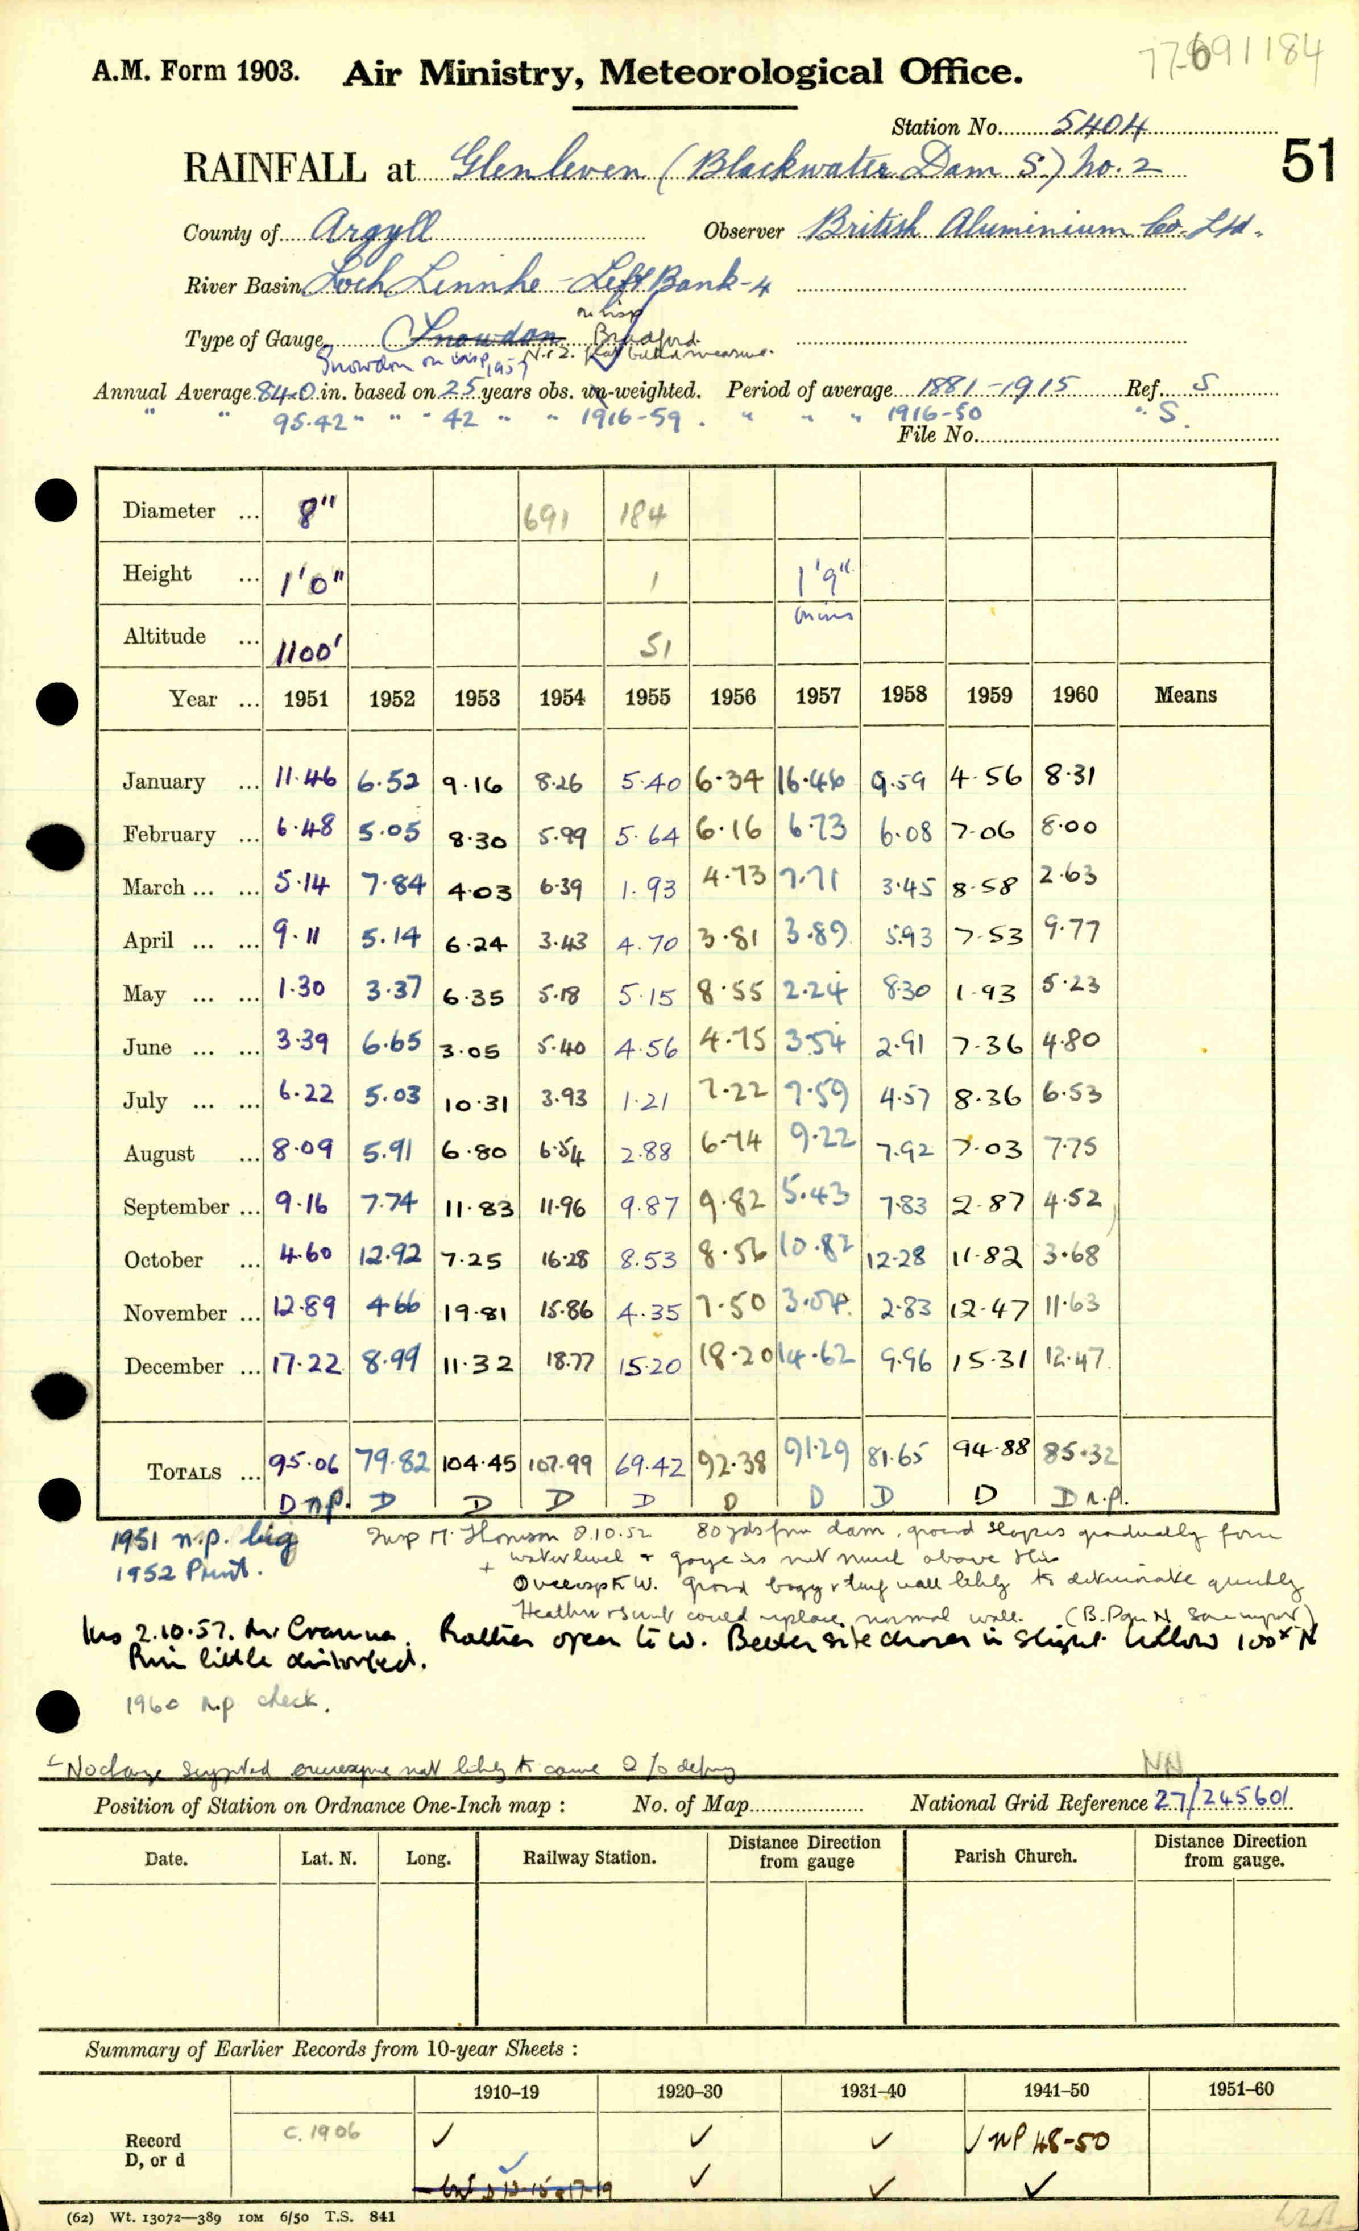 77-691184
A.M. Form 1903. Air Ministry, Meteorological Office.
Station No. 5404
RAINFALL at Glenleven (Blackwater Dam S.) No. 2
51
County of Argyll Observer British Aluminium Co. Ltd.
River Basin Loch Linnhe - Left Bank - 4
on insp
Type of Gauge Snowdon Bradford
Snowdon on insp 1957
Annual Average 84.0 in. based on 25 years obs. un-weighted. Period of average 1881-1915 Ref. S
" " 95.42 " " " 42 " " 1916-59. " " " 1916-50 " S.
File No.
Diameter ... 8" 691 184
Height ... 1'0" 1 1'9"
Altitude ... 1100' 51
Year ... 1951 1952 1953 1954 1955 1956 1957 1958 1959 1960 Means
January ... 11.46 6.52 9.16 8.26 5.40 6.34 16.46 9.59 4.56 8.31
February ... 6.48 5.05 8.30 5.99 5.64 6.16 6.73 6.08 7.06 8.00
March ... ... 5.14 7.84 4.03 6.39 1.93 4.73 7.71 3.45 8.58 2.63
April ... ... 9.11 5.14 6.24 3.43 4.70 3.81 3.89 5.93 7.53 9.77
May ... ... 1.30 3.37 6.35 5.18 5.15 8.55 2.24 8.30 1.93 5.23
June ... ... 3.39 6.65 3.05 5.40 4.56 4.75 3.54 2.91 7.36 4.80
July ... ... 6.22 5.03 10.31 3.93 1.21 7.22 7.59 4.57 8.36 6.53
August ... 8.09 5.91 6.80 6.54 2.88 6.74 9.22 7.92 7.03 7.75
September ... 9.16 7.74 11.83 11.96 9.87 9.82 5.43 7.83 2.87 4.52
October ... 4.60 12.92 7.25 16.28 8.53 8.56 10.82 12.28 11.82 3.68
November ... 12.89 4.66 19.81 15.86 4.35 7.50 3.04 2.83 12.47 11.63
December ... 17.22 8.99 11.32 18.77 15.20 18.20 14.62 9.96 15.31 12.47
TOTALS ... 95.06 79.82 104.45 107.99 69.42 92.38 91.29 81.65 94.88 85.32
D n.p. D D D D D D D D D n.p.
1951 n.p. big Insp 8.10.52 80 yds from dam, ground slopes gradually from
1952 Print. water level + gauge is not much above this
Overexp to W. ground boggy + turf wall likely to deteriorate quickly
Heather could replace normal wall.
Ins 2.10.57. Rather open to W. Better site chosen in slight hollow 100x N
Rim little distorted.
1960 n.p check.
No change suggested overexposure not likely to cause
NN
Position of Station on Ordnance One-Inch map : No. of Map National Grid Reference 27/245601
Date. Lat. N. Long. Railway Station. Distance Direction from gauge Parish Church. Distance Direction from gauge.
Summary of Earlier Records from 10-year Sheets :
1910-19 1920-30 1931-40 1941-50 1951-60
Record D, or d c.1906 ✓ ✓ ✓ ✓ NP 48-50
✓ ✓ ✓ ✓
(62) Wt. 13072—389 10M 6/50 T.S. 841